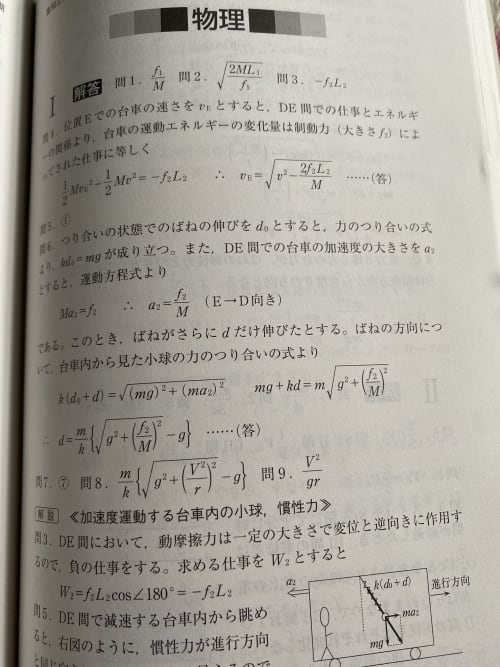 物理
I 解答 問1. f₁/M 問2. √(2ML₁/f₁) 問3. −f₂L₂
問4. 位置Eでの台車の速さを v_E とすると，DE 間での仕事とエネルギ
ーの関係より，台車の運動エネルギーの変化量は制動力（大きさ f₂）によ
ってされた仕事に等しく
1/2 Mv_E² − 1/2 Mv² = −f₂L₂ ∴ v_E = √(v² − 2f₂L₂/M) ……(答)
問5. ①
問6. つり合いの状態でのばねの伸びを d₀ とすると，力のつり合いの式
より，kd₀=mg が成り立つ。また，DE 間での台車の加速度の大きさを a₂
とすると，運動方程式より
Ma₂=f₂ ∴ a₂=f₂/M （E→D向き）
である。このとき，ばねがさらに d だけ伸びたとする。ばねの方向につ
いて，台車内から見た小球の力のつり合いの式より
k(d₀+d)=√((mg)²+(ma₂)²) mg+kd=m√(g²+(f₂/M)²)
∴ d=m/k{√(g²+(f₂/M)²)−g} ……(答)
問7. ⑦ 問8. m/k{√(g²+(V²/r)²)−g} 問9. V²/gr
解説 《加速度運動する台車内の小球，慣性力》
問3. DE間において，動摩擦力は一定の大きさで変位と逆向きに作用す
るので，負の仕事をする。求める仕事を W₂ とすると
W₂=f₂L₂cos∠180°=−f₂L₂
問5. DE間で減速する台車内から眺め
ると，右図のように，慣性力が進行方向
a₂
k(d₀+d)
進行方向
ma₂
mg